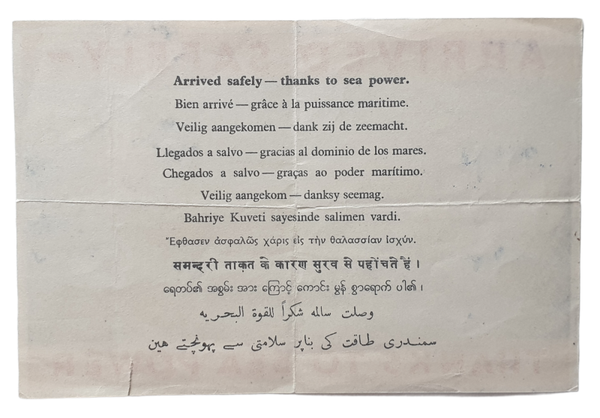 Arrived safely — thanks to sea power.
Bien arrivé — grâce à la puissance maritime.
Veilig aangekomen — dank zij de zeemacht.
Llegados a salvo — gracias al dominio de los mares.
Chegados a salvo — graças ao poder marítimo.
Veilig aangekom — danksy seemag.
Bahriye Kuveti sayesinde salimen vardi.
Ἔφθασεν ἀσφαλῶς χάρις εἰς τὴν θαλασσίαν ἰσχύν.
समन्दरी ताक़त के कारण सुरव से पहोंचते हैं ।
ရေတပ်၏ အစွမ်း အား ကြောင့် ကောင်း မွန် စွာရောက် ပါ၏ ၊
وصلت سالمه شكراً للقوة البحريه
سمندری طاقت کی بناپر سلامتی سے پہونچتے ھین